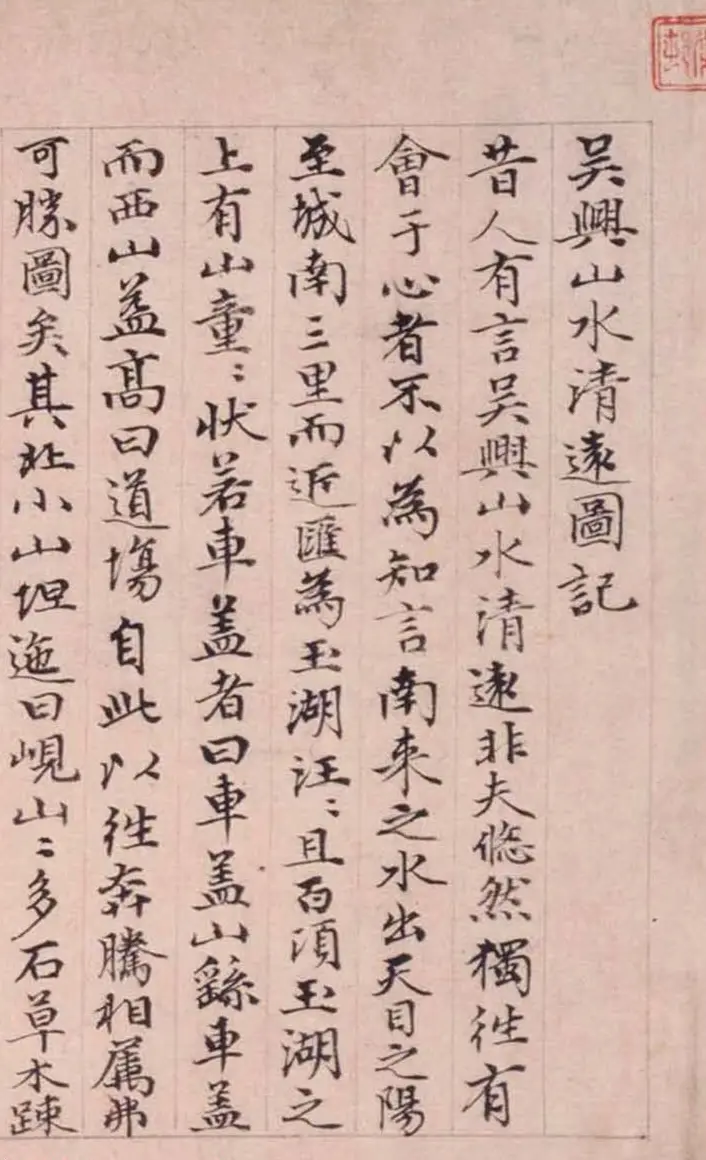 吴興山水清遠圖記
昔人有言吴興山水清遠非夫悠然獨往有
會于心者不以為知言南来之水出天目之陽
至城南三里而近匯為玉湖汪〻且百頃玉湖之
上有山童〻状若車盖者曰車盖山繇車盖
而西山益髙曰道塲自此以往奔騰相属弗
可勝圖矣其北小山坦迤曰峴山〻多石草木踈